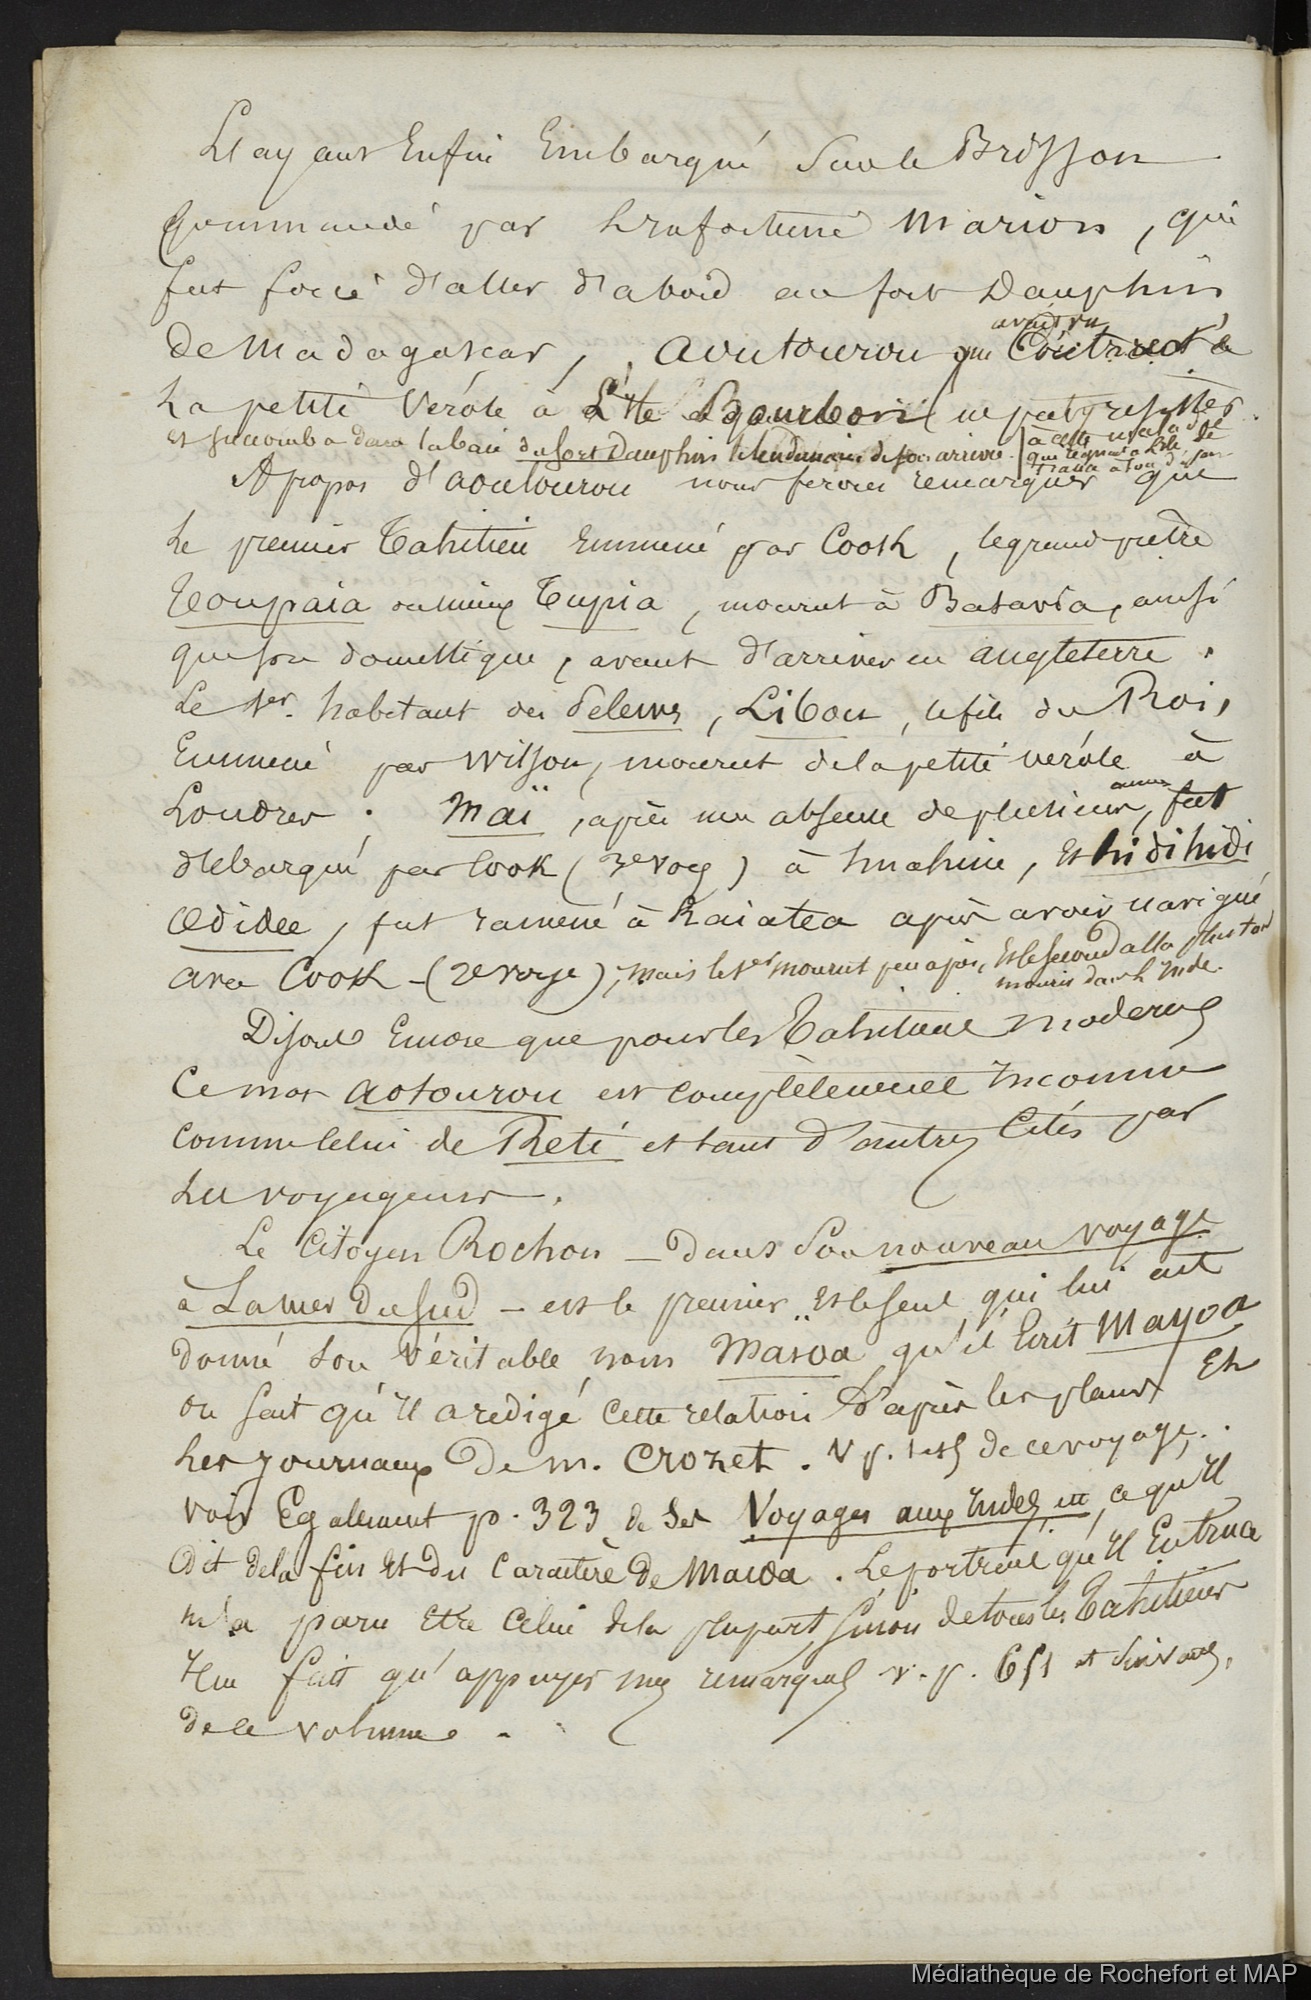 L'ayant Enfin Embarqué Sur le Brisson
Commandé par L'infortuné Marion, qui
fut forcé d'aller d'abord au fort Dauphin
avait vu
De Madagascar, Aoutourou qui Contracta
La petite Vérole à L'Ile Bourbon ne put resister
et succomba dans la baie du fort Dauphin le lendemain de son arrivée.
à cette maladie
que régnait à l'île de
france à son départ
A propos d'aoutourou nous ferons remarquer que
Le premier Tahitien Emmené par Cook, le grand prêtre
Toupaia ou mieux Tupia, mourut à Batavia, ainsi
que son domestique, avant d'arriver en angleterre.
Le 1er. habitant des Pelews, Libou, le fils du Roi,
Emmené par Wilson, mourut de la petite vérole à
Londres; Maï, après une absence de plusieurs années, fut
débarqué par Cook (3e voy) à huahine, Et hidihidi
Oedidee, fut ramené à Raiatea après avoir navigué
avec Cook - (2e voye); mais le 1er mourut peu après, Et le second alla plus tard
mourir dans l'Inde.
Disons Encore que pour les Tahitiens modernes
Ce mot aotourou est complètement Inconnu
comme Celui de Reti et tant d'autres Cités par
Les voyageurs.
Le Citoyen Rochon - dans Son nouveau voyage
à La mer Du sud - est le premier Et le seul qui lui ait
donné son véritable nom Maïoa qu'il Ecrit Mayoa
on sait qu'Il a redigé cette relation D'après les plans Et
Les Journaux De m. Crozet. V p. de ce voyage.
voir Egalement p. 323 de Ses Voyages aux Indes etc, ce qu'Il
Dit de la fin Et du Caractère de Maioa. Le portrait qu'Il En trace
m'a paru Etre Celui de la plupart, sinon de tous les Tahitiens
Il ne fait qu'appuyer mes remarques v. p. 651 et suivantes,
de ce volume.
Médiathèque de Rochefort et MAP